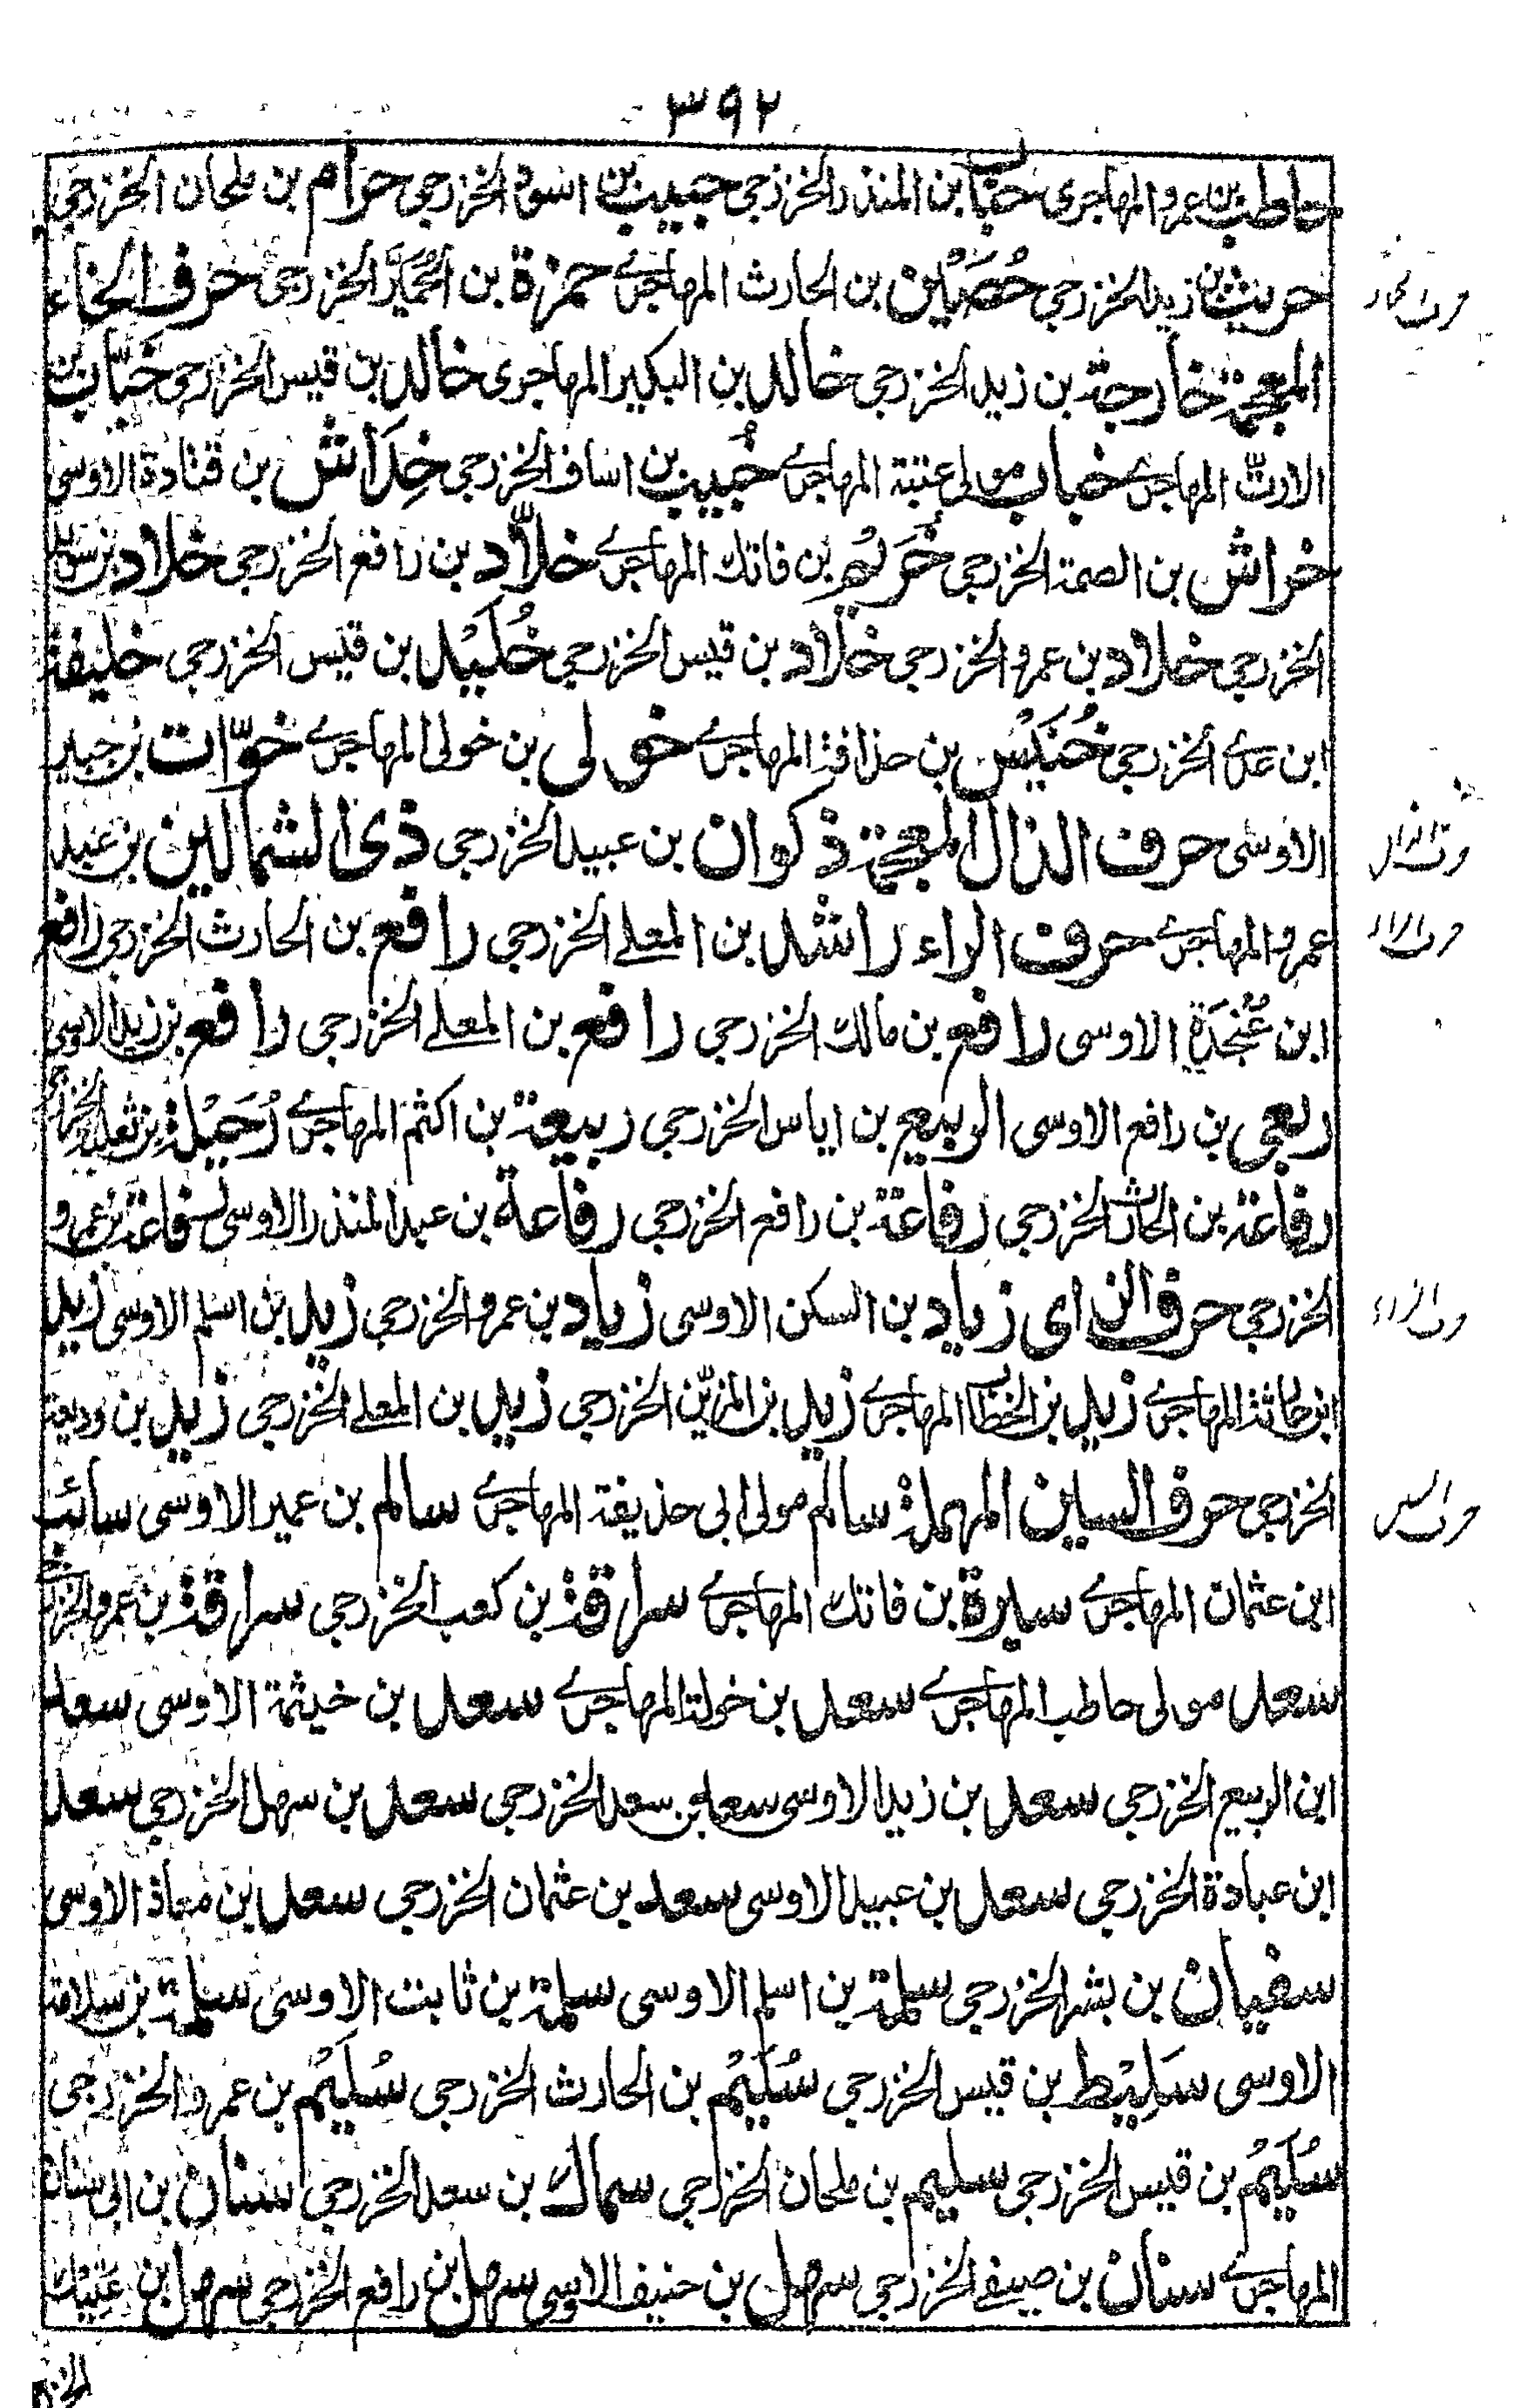 ٣٩٢
حاطب بن عمرو المهاجرى حباب بن المنذر الخزرجى حبيب بن اسود الخزرجى حرام بن ملحان الخزرجى
حريث بن زيد الخزرجى حُصَيْن بن الحارث المهاجرے حمزة بن الحُمَيَّر الخزرجى حرف الخاء
المعجمة خارجة بن زيد الخزرجى خالد بن البكير المهاجرى خالد بن قيس الخزرجى خَبّاب بن
الارتّ المهاجرے خباب مولى عتبة المهاجرے خُبيب بن اساف الخزرجى خِدَاش بن قتادة الاوسى
خراش بن الصمة الخزرجى خُرَيْم بن فاتك المهاجرے خلاّد بن رافع الخزرجى خلاد بن سويد
الخزرجى خلاد بن عمرو الخزرجى خلّاد بن قيس الخزرجى خُلَيْل بن قيس الخزرجى خليفة
ابن عدى الخزرجى خُنَيْس بن حذافة المهاجرے خولى بن خولى المهاجرے خوّات بن جبير
الاوسى حرف الذال المعجمة ذكوان بن عبيد الخزرجى ذى الشمالين بن عبد
عمرو المهاجرے حرف الراء راشد بن المعلے الخزرجى رافع بن الحارث الخزرجى رافع
ابن عُنْجُدَة الاوسى رافع بن مالك الخزرجى رافع بن المعلے الخزرجى رافع بن زيد الاوسى
ربعى بن رافع الاوسى الربيع بن اياس الخزرجى ربيعة بن اكثم المهاجرے رُحَيْلة بن ثعلبة الخزرجى
رفاعة بن الحارث الخزرجى رفاعة بن رافع الخزرجى رفاعة بن عبد المنذر الاوسى رفاعة بن عمرو
الخزرجى حرف الزاى زياد بن السكن الاوسى زياد بن عمرو الخزرجى زيد بن اسلم الاوسى زيد
ابن حارثة المهاجرے زيد بن الخطاب المهاجرے زيد بن المزيّن الخزرجى زيد بن المعلے الخزرجى زيد بن وديعة
الخزرجى حرف السين المهملة سالم مولى ابى حذيفة المهاجرے سالم بن عمير الاوسى سائب
ابن عثمان المهاجرے سبرة بن فاتك المهاجرے سراقة بن كعب الخزرجى سراقة بن عمرو الخزرجى
سعد مولى حاطب المهاجرے سعد بن خولة المهاجرے سعد بن خيثمة الاوسى سعد
ابن الربيع الخزرجى سعد بن زيد الاوسى سعد بن سعد الخزرجى سعد بن سهل الخزرجى سعد
ابن عبادة الخزرجى سعد بن عبيد الاوسى سعد بن عثمان الخزرجى سعد بن معاذ الاوسى
سفيان بن بشر الخزرجى سلمة بن اسلم الاوسى سلمة بن ثابت الاوسى سلمة بن سلامة
الاوسى سَلِيْط بن قيس الخزرجى سُلَيْم بن الحارث الخزرجى سُلَيْم بن عمرو الخزرجى
سُلَيْم بن قيس الخزرجى سليم بن ملحان الخزرجى سماك بن سعد الخزرجى سنان بن ابى سنان
المهاجرے سنان بن صيفے الخزرجى سهل بن حنيف الاوسى سهل بن رافع الخزرجى سهل بن عتيك
الخزرجى
حرف الخاء
حرف الذال
حرف الراء
حرف الزاء
حرف السين